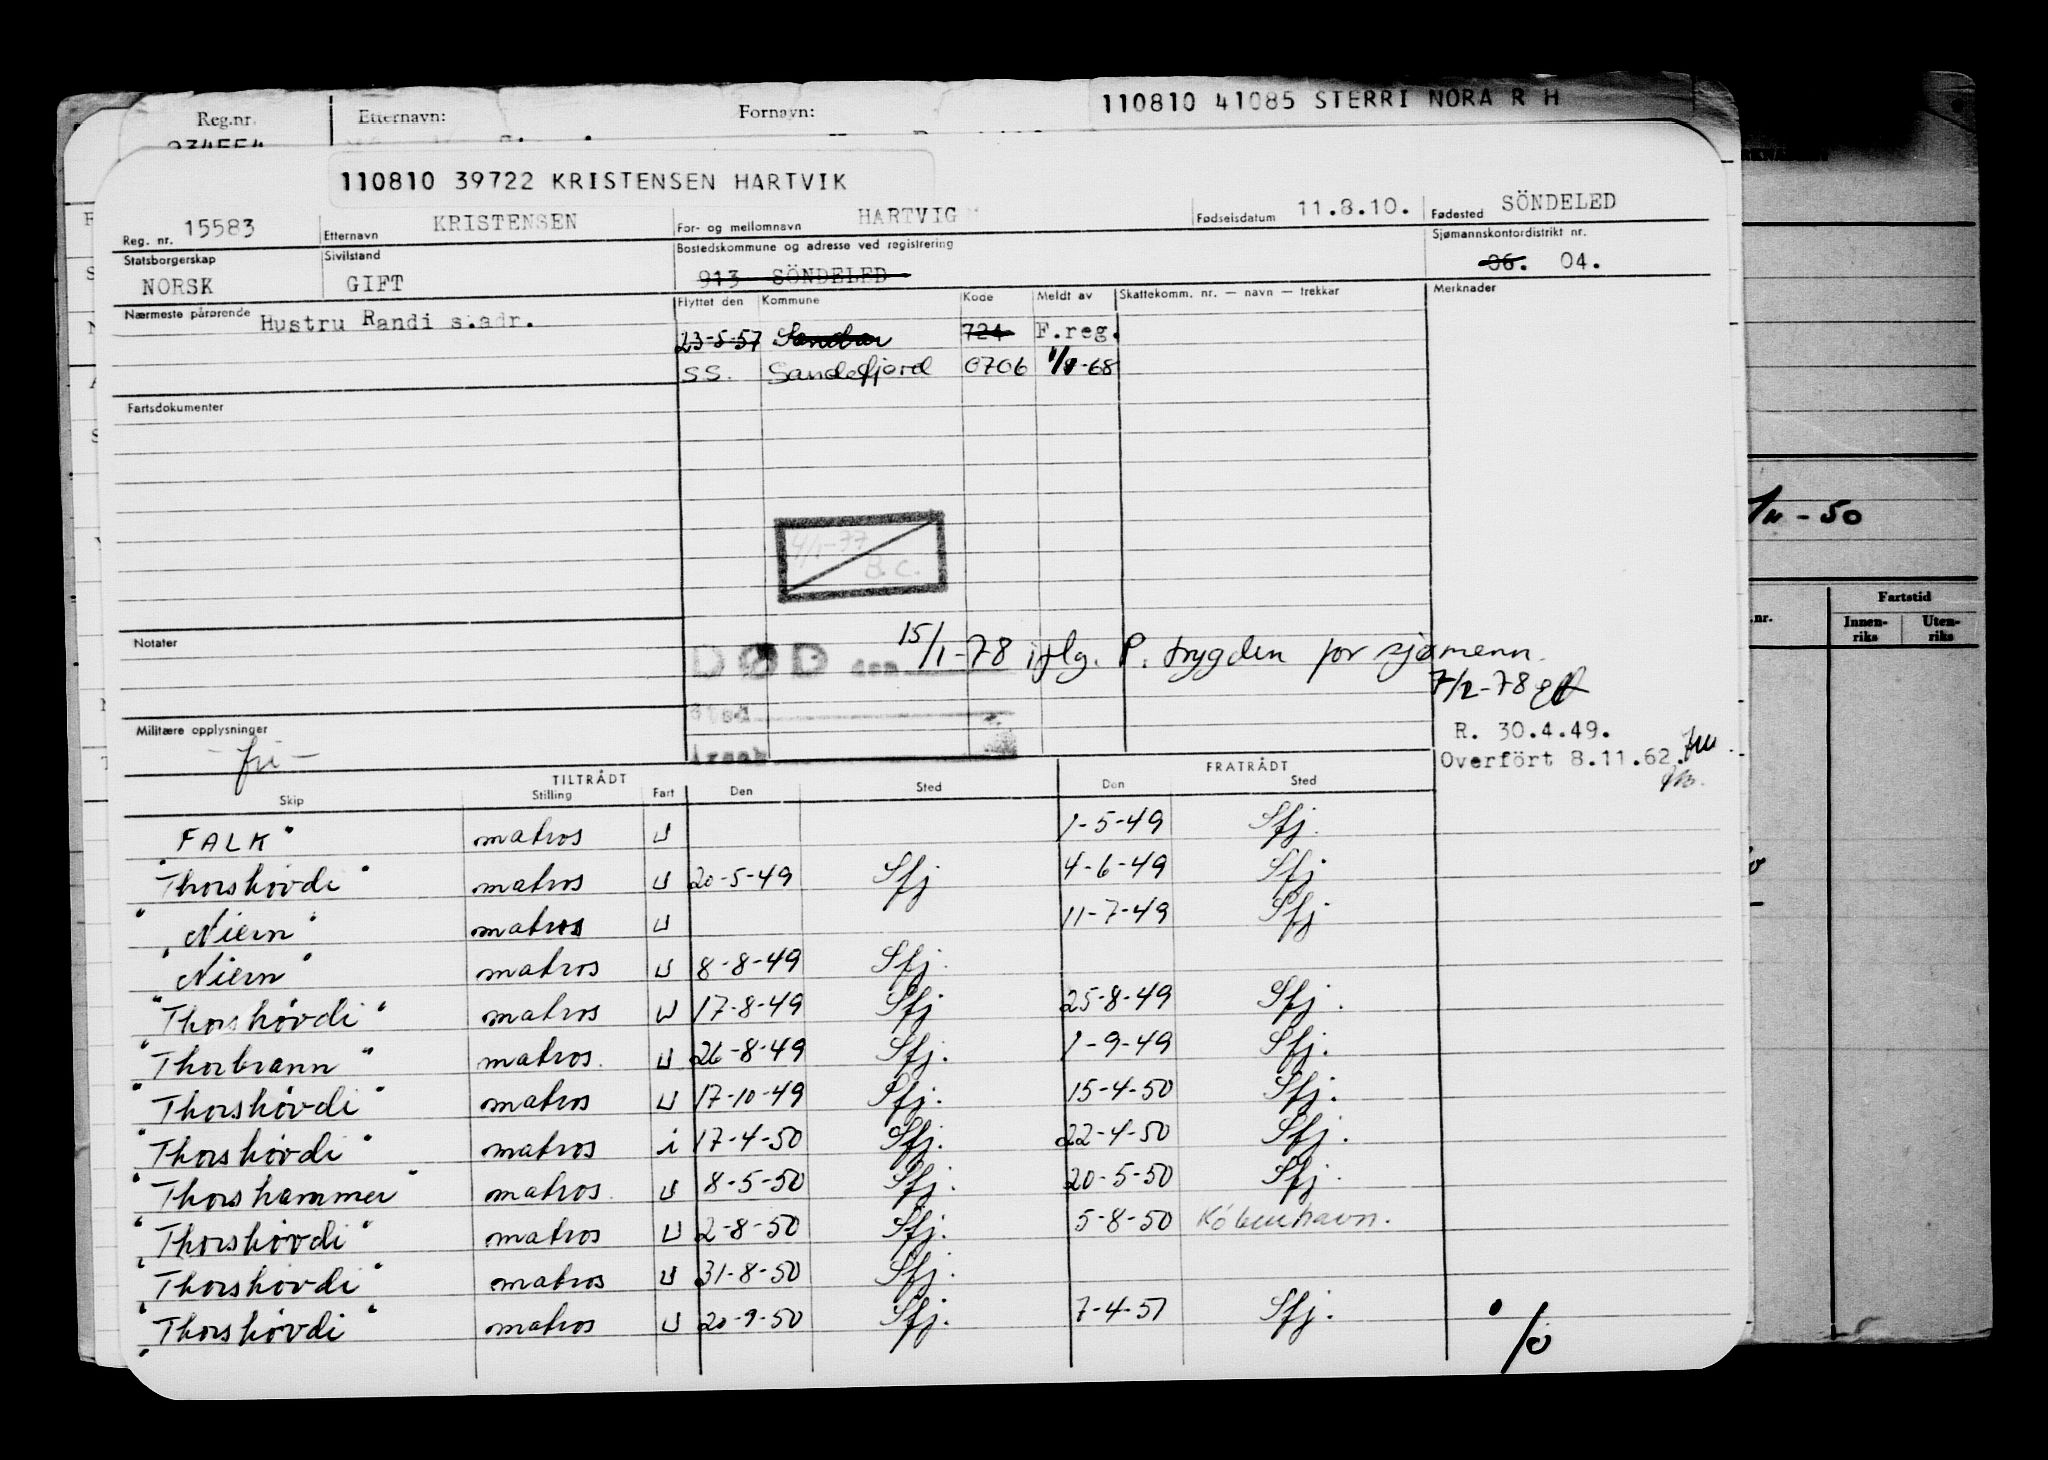 110810 41085 STERRI NORA R H
Reg.nr. Etternavn: Fornavn:
110810 39722 KRISTENSEN HARTVIK
Reg. nr. 15583 Etternavn KRISTENSEN For- og mellomnavn HARTVIG Fødselsdatum 11.8.10. Fødested SÖNDELED
Statsborgerskap Sivilstand Bostedskommune og adresse ved registrering Sjømannskontordistrikt nr.
NORSK GIFT 913 SÖNDELED 06. 04.
Nærmeste pårørende Hustru Randi s.adr. Flyttet den Kommune Kode Meldt av Skattekomm. nr. — navn — trekkar Merknader
23-5-57 Sandar 724 F.reg.
SS. Sandefjord 0706 1/1-68
Fartsdokumenter
4/1-77
B.C.
1/11-50
Fartstid
.nr. Innen-riks Uten-riks
Notater
DØD den 15/1-78 iflg. P. trygden for sjømenn.
7/2-78
Sted
Årsak
Militære opplysninger
- fri -
R. 30.4.49.
Overfört 8.11.62.
TILTRÅDT FRATRÅDT
Skip Stilling Fart Den Sted Den Sted
"FALK" matros U 1-5-49 Sfj.
"Thorshövdi" matros U 20-5-49 Sfj 4-6-49 Sfj
"Niern" matros U 11-7-49 Sfj
"Niern" matros U 8-8-49 Sfj.
"Thorshövdi" matros U 17-8-49 Sfj 25-8-49 Sfj.
"Thorbrann" matros. U 26-8-49 Sfj. 1-9-49 Sfj.
"Thorshövdi" matros U 17-10-49 Sfj. 15-4-50 Sfj.
"Thorshövdi" matros i 17-4-50 Sfj. 22-4-50 Sfj.
"Thorshammer" matros. U 8-5-50 Sfj. 20-5-50 Sfj.
"Thorshövdi" matros U 2-8-50 Sfj. 5-8-50 Köbenhavn.
"Thorshövdi" matros U 31-8-50 Sfj.
"Thorshövdi" matros U 20-9-50 Sfj. 7-4-51 Sfj.